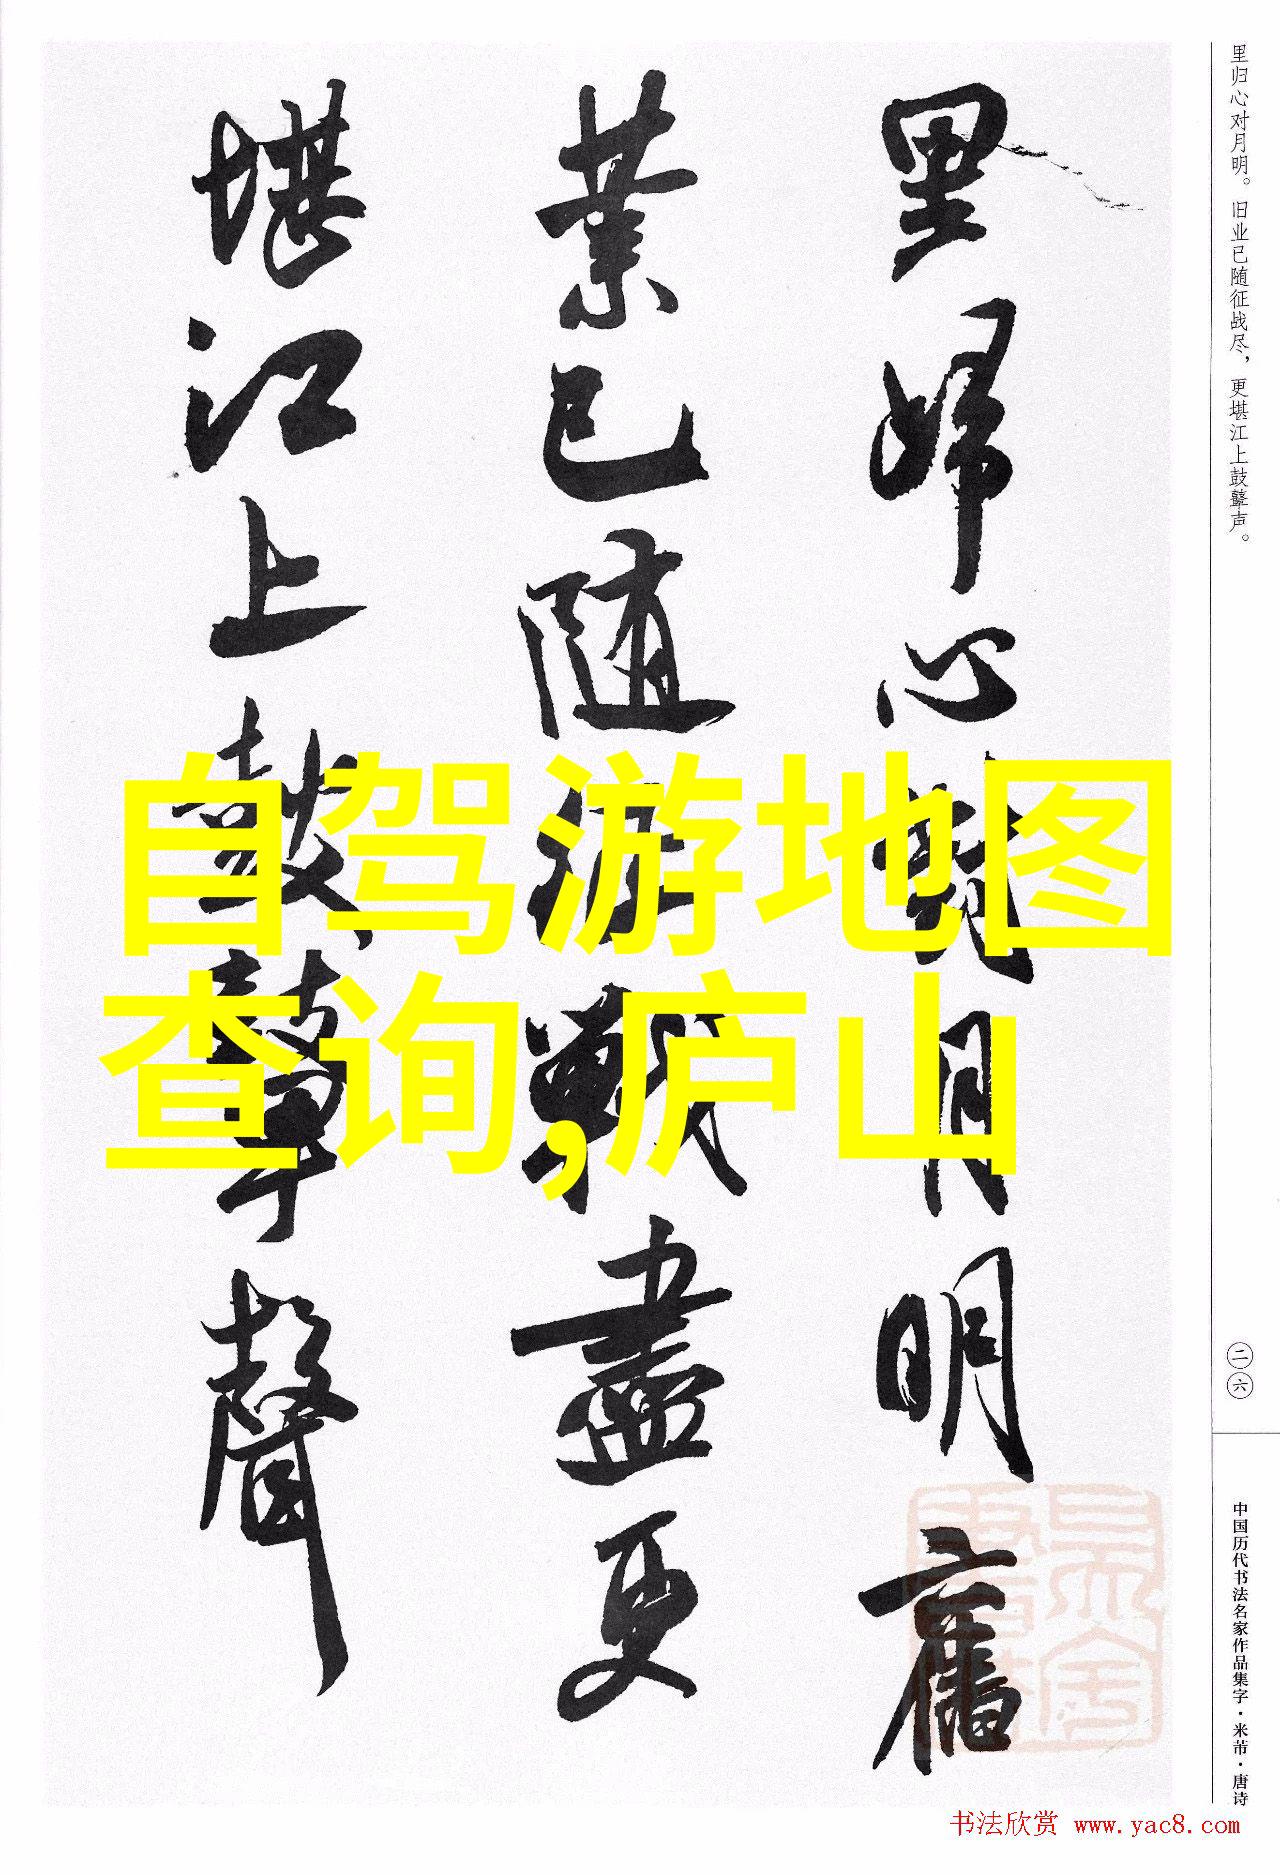 里归心对月明。旧业已随征战尽，更堪江上鼓鼙声。
里歸心對月明舊
業已随征戰盡更
堪江上鼓鼙聲
自驾游地图
查询,庐山
二六
中国历代书法名家作品集字·米芾·唐诗
书法欣赏 www.yac8.com